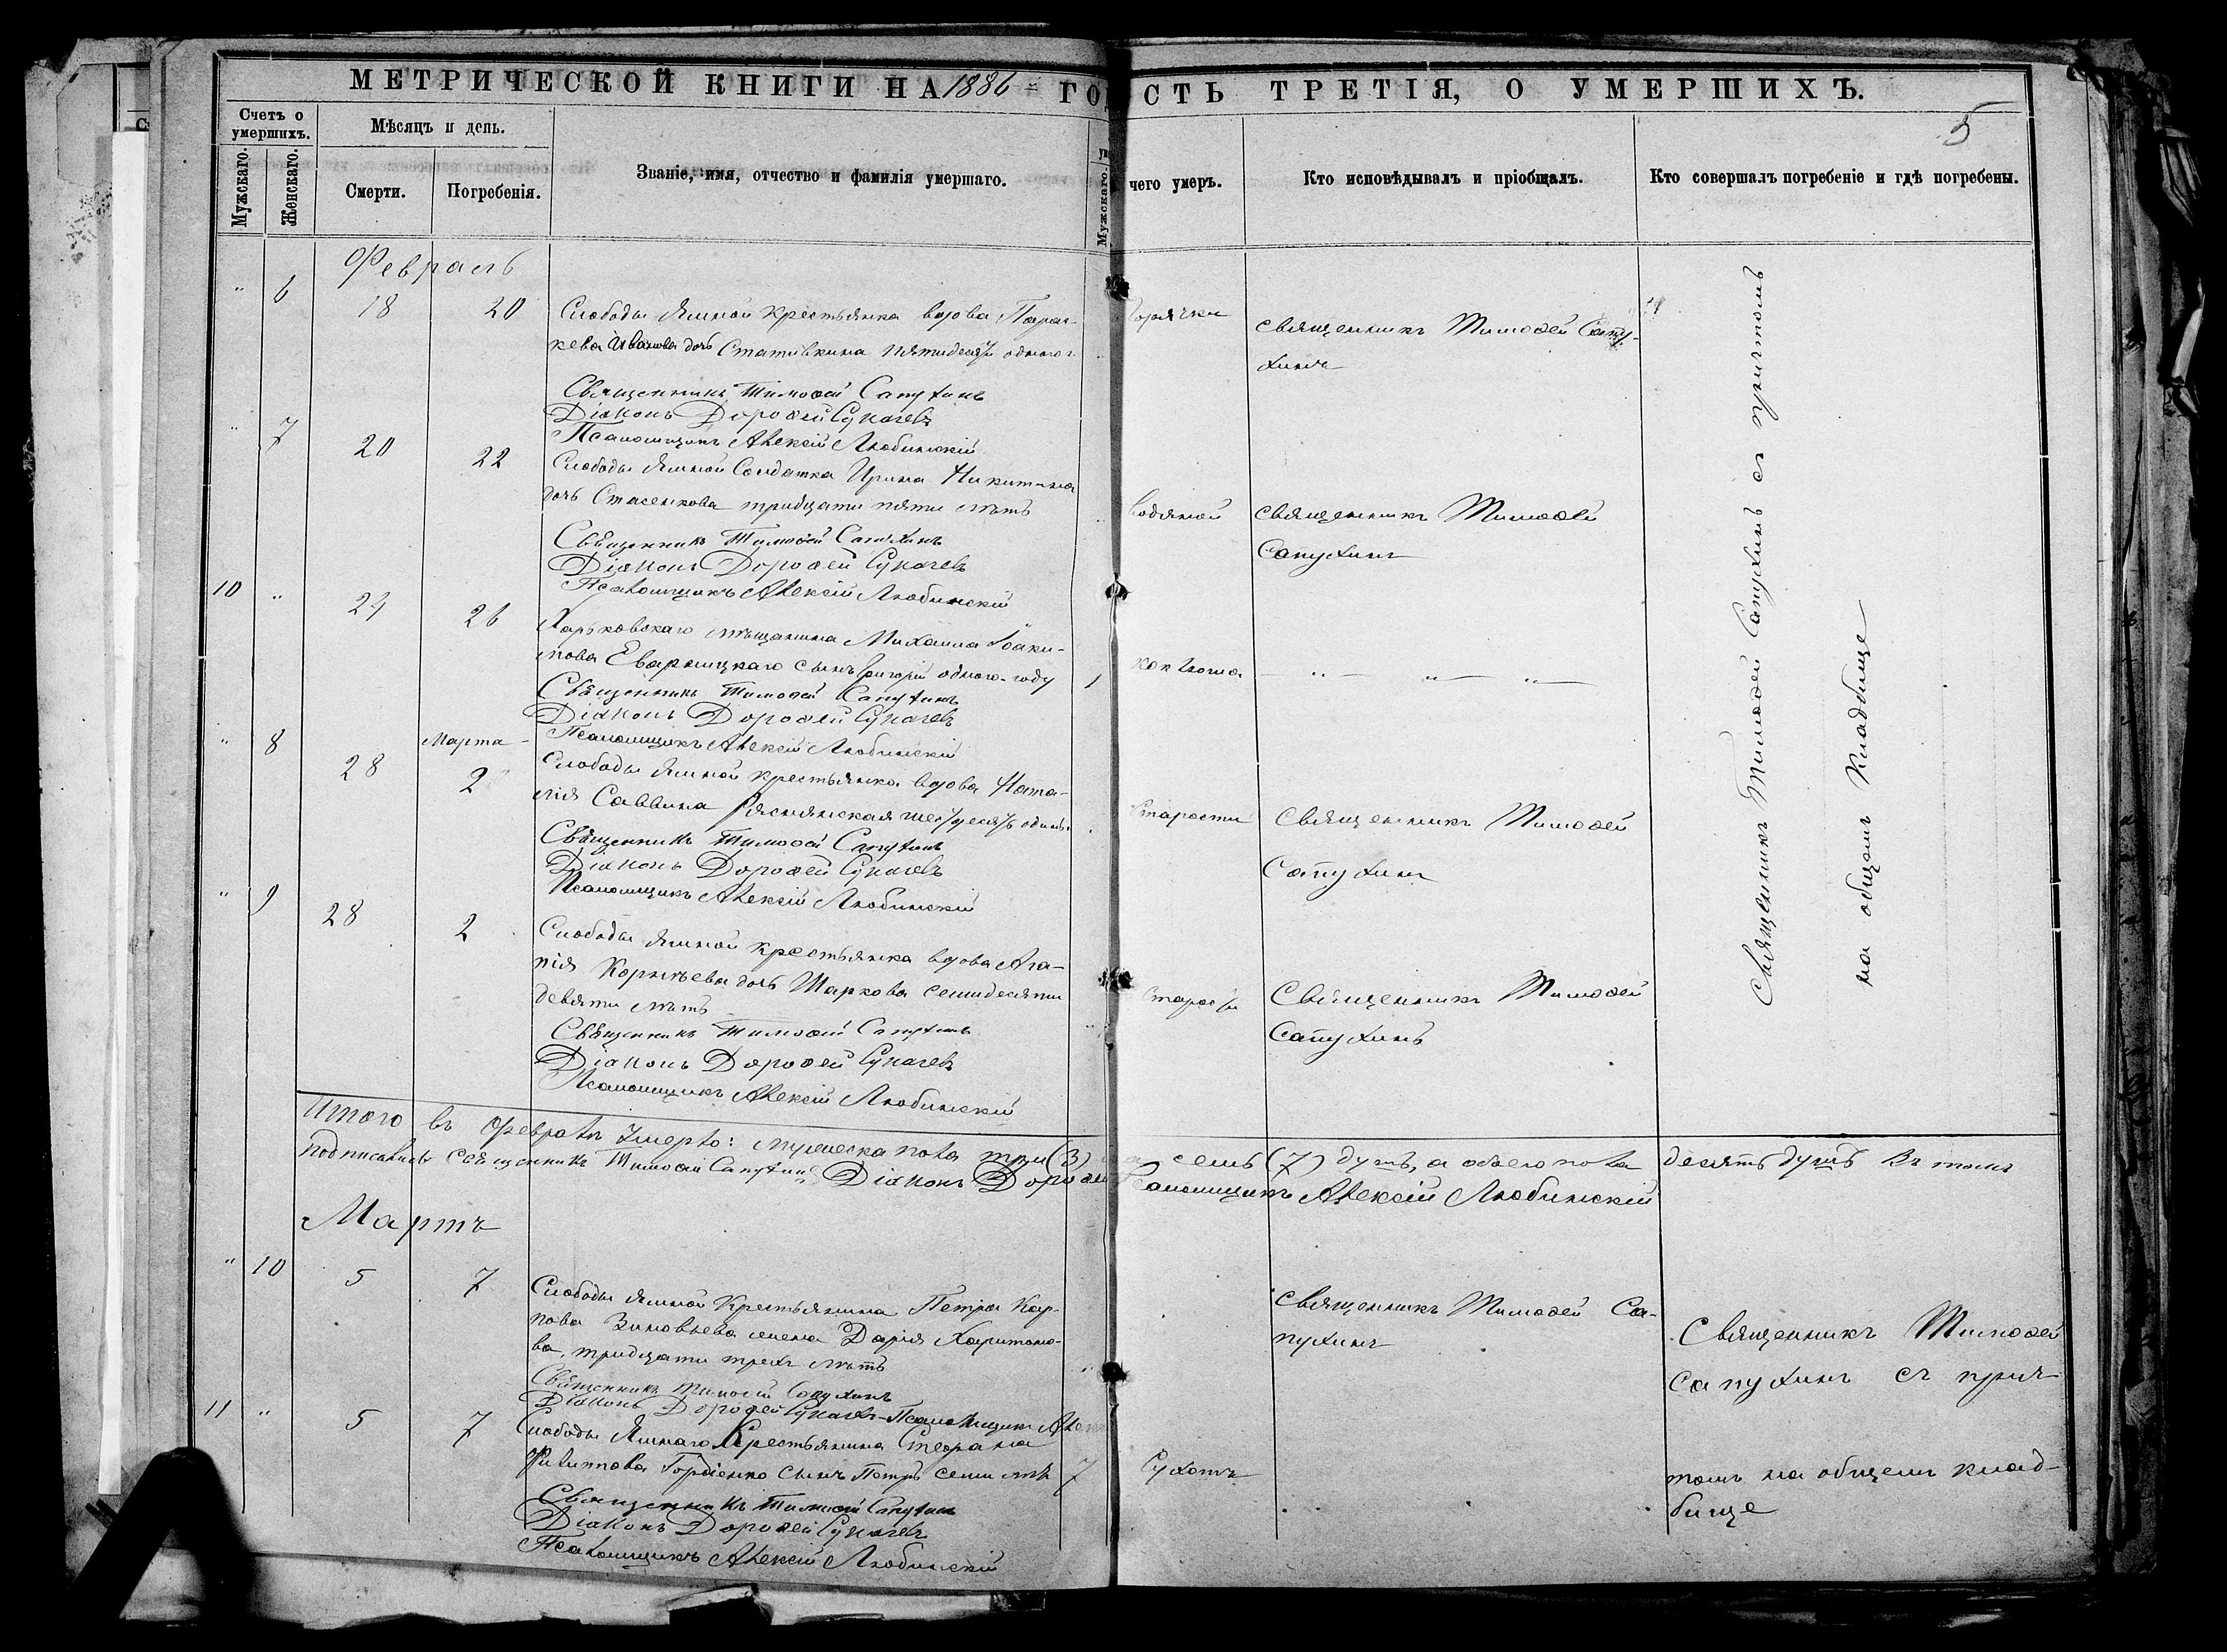 МЕТРИЧЕСКОЙ КНИГИ НА 1886 ГО
СТЬ ТРЕТІЯ, О УМЕРШИХЪ.
5
Счетъ о умершихъ.
Мужскаго.
Женскаго.
Мѣсяцъ и день.
Смерти.
Погребенія.
Званіе, имя, отчество и фамилія умершаго.
Мужскаго.
чего умеръ.
Кто исповѣдывалъ и пріобщалъ.
Кто совершалъ погребеніе и гдѣ погребены.
Февраль
" 6 18 20
Слободы Ямной крестьянка вдова Парас-
кева Иванова дочь Стативкина пятидесяти одного г.
Священникъ Тимоѳей Сапухинъ
Діаконъ Дороѳей Сукачевъ
Псаломщикъ Алексій Любинскій
Горячки
священникъ Тимоѳей Сапу-
хинъ
" 7 20 22
Слободы Ямной Солдатка Ирина Никитина
дочь Стасенкова тридцати пяти лѣтъ
Священникъ Тимоѳей Сапухинъ
Діаконъ Дороѳей Сукачевъ
Псаломщикъ Алексій Любинскій
водяной
священникъ Тимоѳей
Сапухинъ
10 " 24 26
Харьковскаго мѣщанина Михаила Іоаки-
мова Еварницкаго сынъ Григорій одного году
1
Священникъ Тимоѳей Сапухинъ
Діаконъ Дороѳей Сукачевъ
Псаломщикъ Алексій Любинскій
коклюша
" " "
Марта
" 8 28 2
Слободы Ямной крестьянка вдова Ната-
лія Саввина Ряснянская шестьдесятъ одинъ
Священникъ Тимоѳей Сапухинъ
Діаконъ Дороѳей Сукачевъ
Псаломщикъ Алексій Любинскій
Старости
Священникъ Тимоѳей
Сапухинъ
" 9 28 2
Слободы Ямной крестьянка вдова Ага-
пія Корнѣева дочь Шаркова семидесяти
девяти лѣтъ
Священникъ Тимоѳей Сапухинъ
Діаконъ Дороѳей Сукачевъ
Псаломщикъ Алексій Любинскій
Старости
Священникъ Тимоѳей
Сапухинъ
Священникъ Тимоѳей Сапухинъ съ причтомъ
на общемъ Кладбище
Итого въ Февралѣ умерло: мужеска пола три (3) семь (7) душъ, а обоего пола десять душъ Въ томъ
подписались Священникъ Тимоѳей Сапухинъ Діаконъ Дороѳей Псаломщикъ Алексій Любинскій
Мартъ
" 10 5 7
Слободы Ямной Крестьянина Петра Кар-
пова Зиновьева жена Дарія Харитоно-
ва, тридцати трехъ лѣтъ
Священникъ Тимоѳей Сапухинъ
Діаконъ Дороѳей Сукачевъ Псаломщикъ Алек
священникъ Тимоѳей Са-
пухинъ
Священникъ Тимоѳей
Сапухинъ съ прич-
11 " 5 7
Слободы Ямнаго Крестьянина Стефана
Филиппова Гордіенко сынъ Петръ семи лѣтъ
7
Священникъ Тимоѳей Сапухинъ
Діаконъ Дороѳей Сукачевъ
Псаломщикъ Алексій Любинскій
Сухотъ
томъ на общемъ клад-
бище